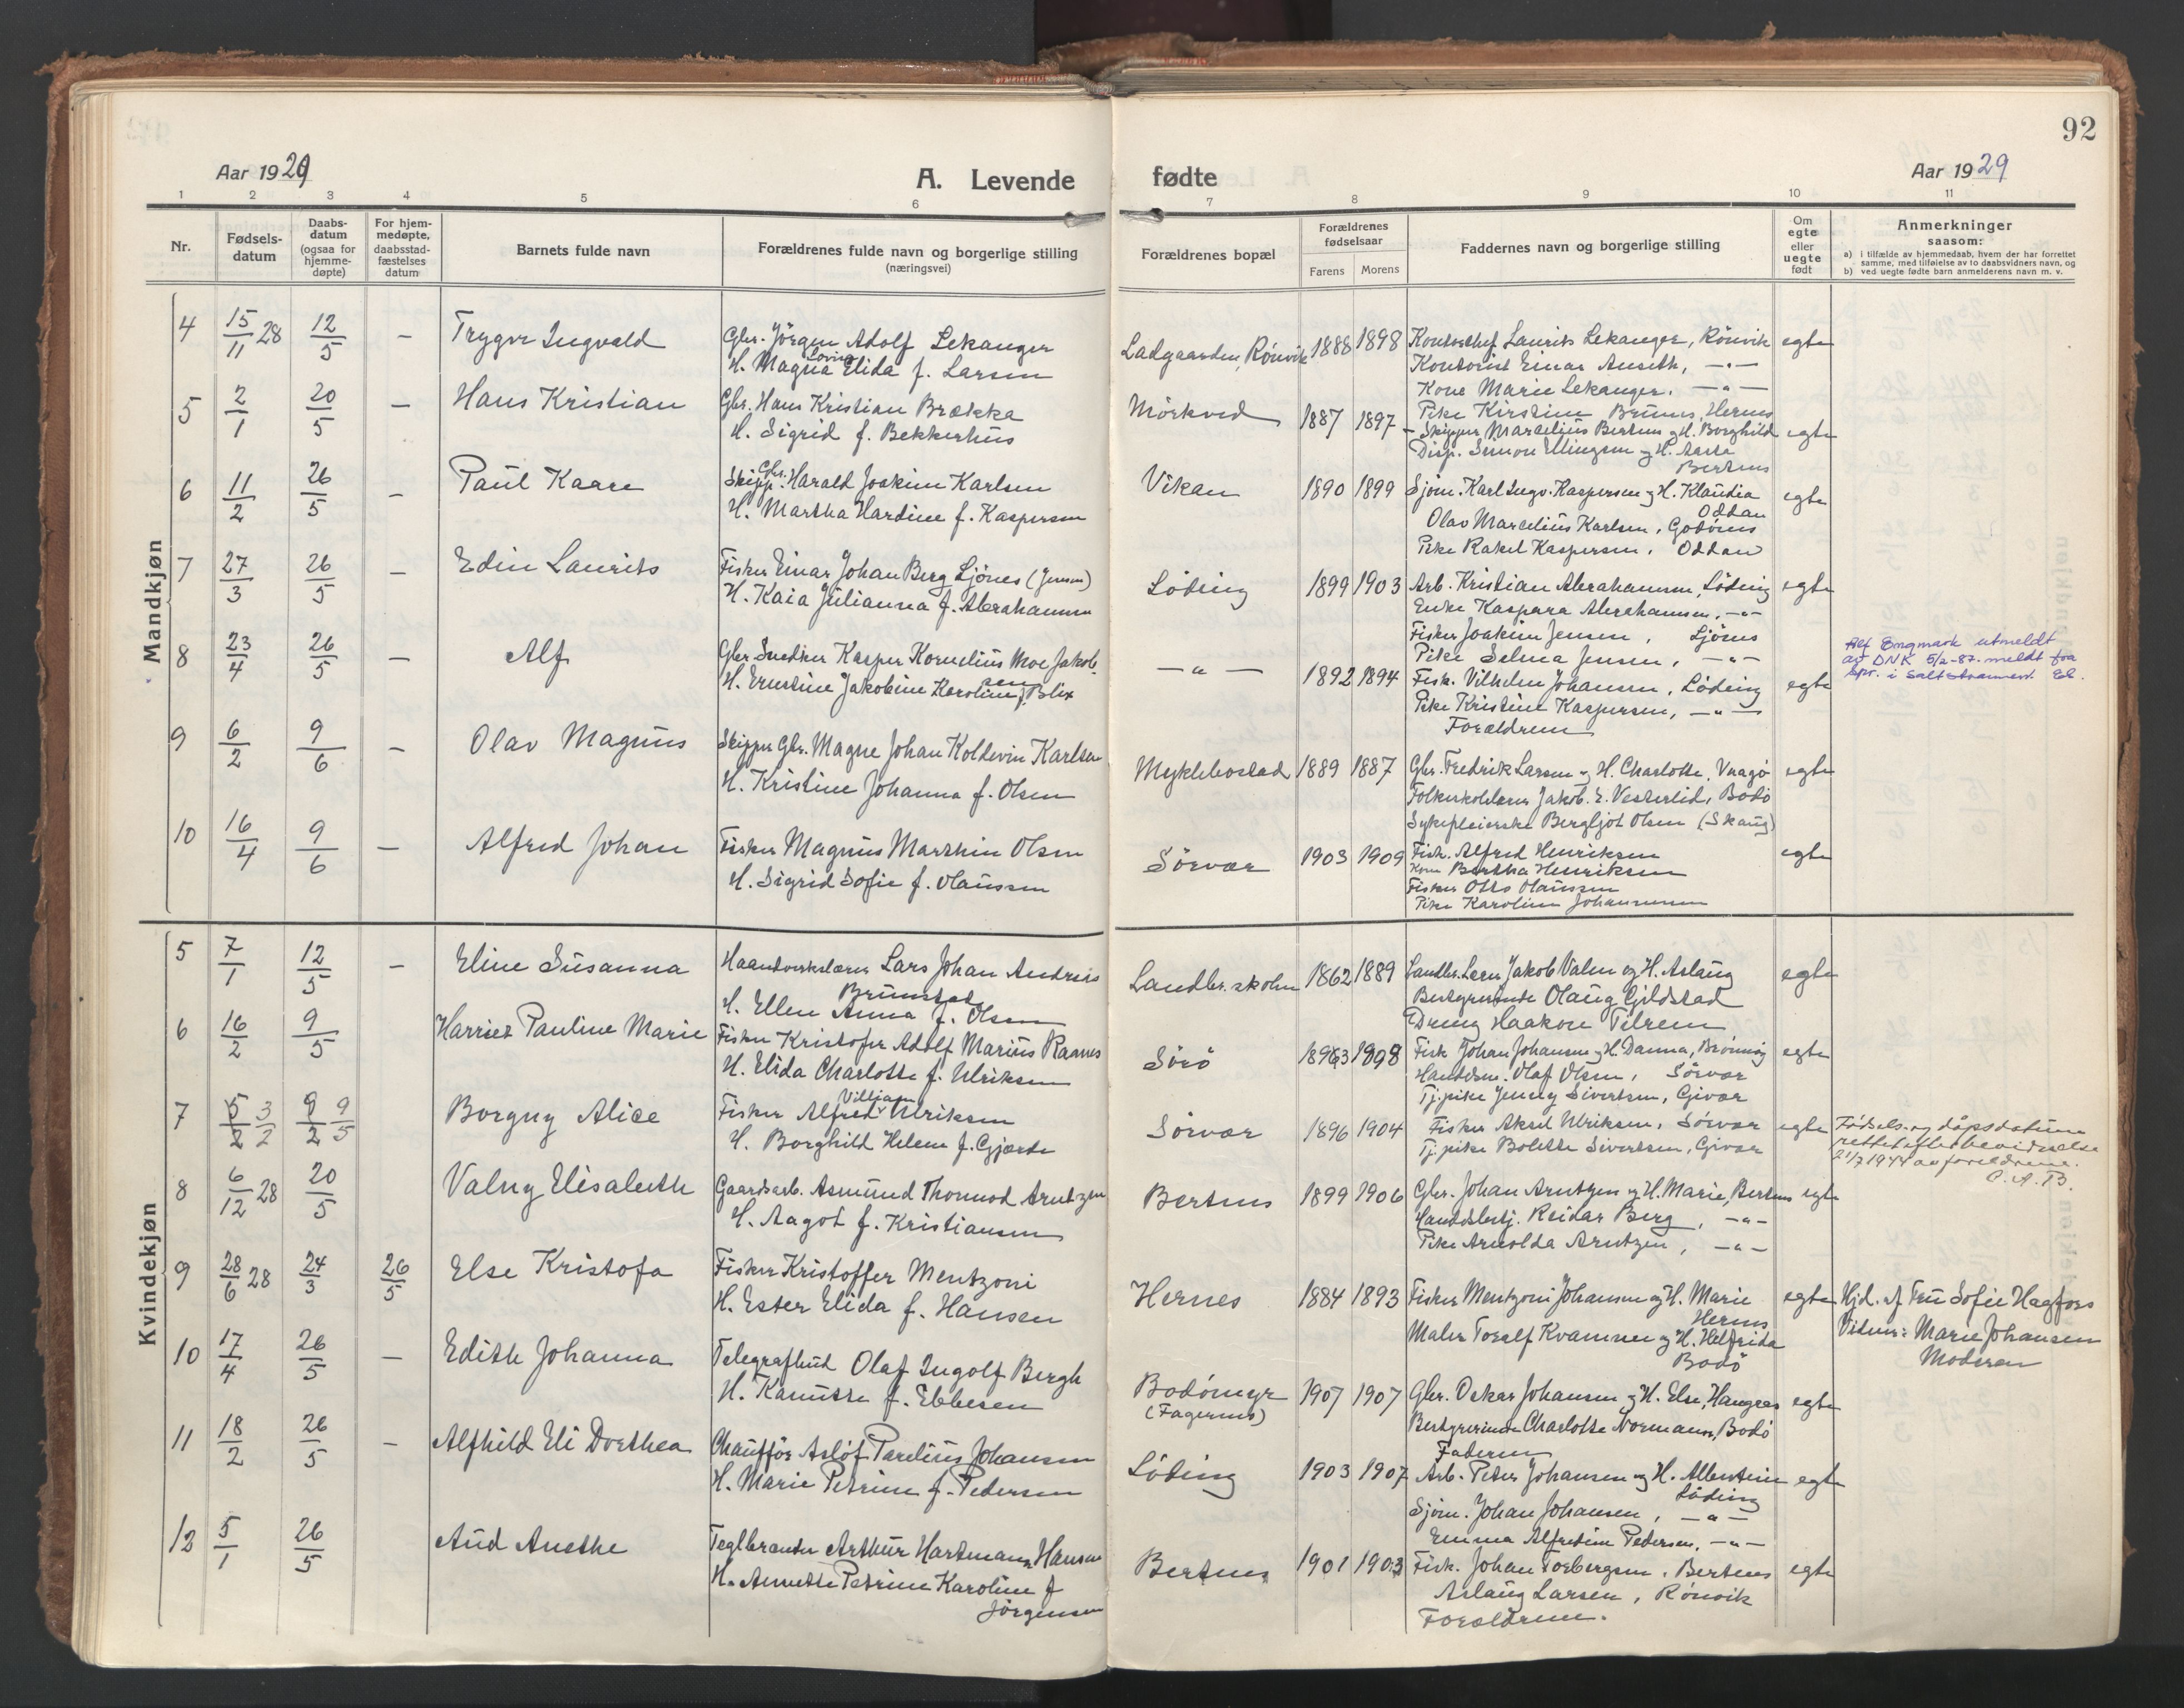 92
Aar 1929
A. Levende
fødte
Aar 1929
1 2 3 4 5 6 7 8 9 10 11
Nr.
Fødsels-
datum
Daabs-
datum
(ogsaa for
hjemme-
døpte)
For hjem-
medøpte,
daabsstad-
fæstelses
datum
Barnets fulde navn
Forældrenes fulde navn og borgerlige stilling
(næringsvei)
Forældrenes bopæl
Forældrenes
fødselsaar
Farens Morens
Faddernes navn og borgerlige stilling
Om
egte
eller
uegte
født
Anmerkninger
saasom:
a) i tilfælde av hjemmedaab, hvem der har forrettet
samme, med tilføielse av to daabsvidners navn, og
b) ved uegte fødte barn anmelderens navn m. v.
Mandkjøn
4 15/11 28 12/5 — Trygve Ingvald
Gbr. Jörgen Adolf Lekanger
H. Magna Lovise Elida f. Larsen
Ladgaarden, Rönvik 1888 1898
Kontorchef Laurits Lekanger, Rönvik egte
Kontorist Einar Anseth, —"—
Kone Marie Lekanger. —"—
Pike Kirstine Brunes, Hernes
5 2/1 20/5 — Hans Kristian
Gbr. Hans Kristian Brækka
H. Sigrid f. Bekkerhus
Mörkved 1887 1897
Skipper Marcelius Bertnes og H. Borghild egte
Disp. Simon Ellingsen og H. Aasta
Bertnes
6 11/2 26/5 — Paul Kaare
Skipp. Gbr. Harald Joakim Karlsen
H. Martha Hardine f. Kaspersen
Vikan 1890 1899
Sjöm. Karl Ingv. Kaspersen og H. Klaudia egte
Oddan
Olav Marcelius Karlsen, Godönes
Pike Rakel Kaspersen, Oddan
7 27/3 26/5 — Edin Laurits
Fisker Einar Johan Berg Ljönes (Jensen)
H. Kaia Julianna f. Abrahamsen
Löding 1899 1903
Arb. Kristian Abrahamsen, Löding egte
Enke Kaspara Abrahamsen, —"—
Fisker Joakim Jensen, Ljönes
Pike Selma Jensen, —"—
8 23/4 26/5 — Alf
Gbr. Snedker Kasper Kornelius Moe Jakob-
sen
H. Ernstine Jakobine Karoline f. Blix
—"— 1892 1894
Fisk. Vilhelm Johansen, Löding egte
Pike Kristine Kaspersen, —"—
Forældrene
Alf Engmark utmeldt
av DNK 5/2-87. meldt fra
Spr. i Saltstraumen.
9 6/2 9/6 — Olav Magnus
Skipper Gbr. Magne Johan Koldevin Karlsen
H. Kristine Johanna f. Olsen
Myklebostad 1889 1887
Gbr. Fredrik Larsen og H. Charlotte, Vaagö egte
Folkeskolelærer Jakob. E. Vesterlid, Bodö
Sykepleierske Bergljot Olsen (Skaug)
10 16/4 9/6 — Alfred Johan
Fisker Magnus Marthin Olsen
H. Sigrid Sofie f. Olaussen
Sörvær 1903 1909
Fisk. Alfred Henriksen egte
Kone Bertha Henriksen
Fisker Otto Olaussen
Pike Karoline Johannessen
Kvindekjøn
5 7/1 12/5 — Eline Susanna
Haandverkslærer Lars Johan Andreas
Brunstad
H. Ellen Anna f. Olsen
Landbr. skolen 1862 1889
Landbr. Lærer Jakob Valen og H. Aslaug egte
Bestyrerinde Olaug Gjildstad
Dreng Haakon Tilrem
6 16/2 9/5 Harriet Pauline Marie
Fisker Kristofer Adolf Marius Raanes
H. Elida Charlotte f. Ulriksen
Sörö 1893 1898
Fisk Johan Johansen og H. Danna, Brönnöy egte
Handelsm. Olaf Olsen, Sörvær
Tj.pike Jenny Sivertsen, Givær
7 5/2 3/2 9/2 9/5 Borgny Alice
Fisker Alfred Villiam Ulriksen
H. Borghild Helene f. Gjærde
Sörvær 1896 1904
Fisker Aksel Ulriksen, Sörvær egte
Tj.pike Bolette Sivertsen, Givær
Födsels- og dåpsdatum
rettet efter bevidnelse
21/7 1944 av foreldrene.
O. A. B.
8 6/12 28 20/5 Valny Elisabeth
Gaardsarb. Asmund Thormod Arntzen
H. Aagot f. Kristiansen
Bertnes 1899 1906
Gbr. Johan Arntzen og H. Marie, Bertnes egte
Handelsbetj. Reidar Berg, —"—
Pike Arnolda Arntzen, —"—
9 28/6 28 24/3 26/5 Else Kristofa
Fisker Kristoffer Mentzoni
H. Ester Elida f. Hansen
Hernes 1884 1893
Fisker Mentzoni Johansen og H. Marie egte
Hernes
Maler Toralf Kvamme og H. Helfrida
Bodö
Hjd. af Fru Sofie Hagfors
Vidner: Marie Johansen
Moderen
10 17/4 26/5 — Edith Johanna
Telegrafbud Olaf Ingolf Bergh
H. Kanutte f. Ebbesen
Bodömyr
(Fagernes)
1907 1907
Gbr. Oskar Johansen og H. Else, Haugees egte
Bestyrerinde Charlotte Normann, Bodö
Faderen
11 18/2 26/5 — Alfhild Eli Dorthea
Chaufför Aslöf Parelius Johansen
H. Marie Petrine f. Pedersen
Löding 1903 1907
Arb. Peter Johansen og H. Albertine egte
Löding
Sjöm. Johan Johansen, —"—
Emma Alfredine Pedersen, —"—
12 5/1 26/5 Aud Anethe
Teglbrænder Arthur Hartmann Hansen
H. Annette Petrine Karoline f
Jörgensen
Bertnes 1901 1903
Fisk. Johan Torbergsen, Bertnes egte
Aslaug Larsen, Rönvik
Forældrene.